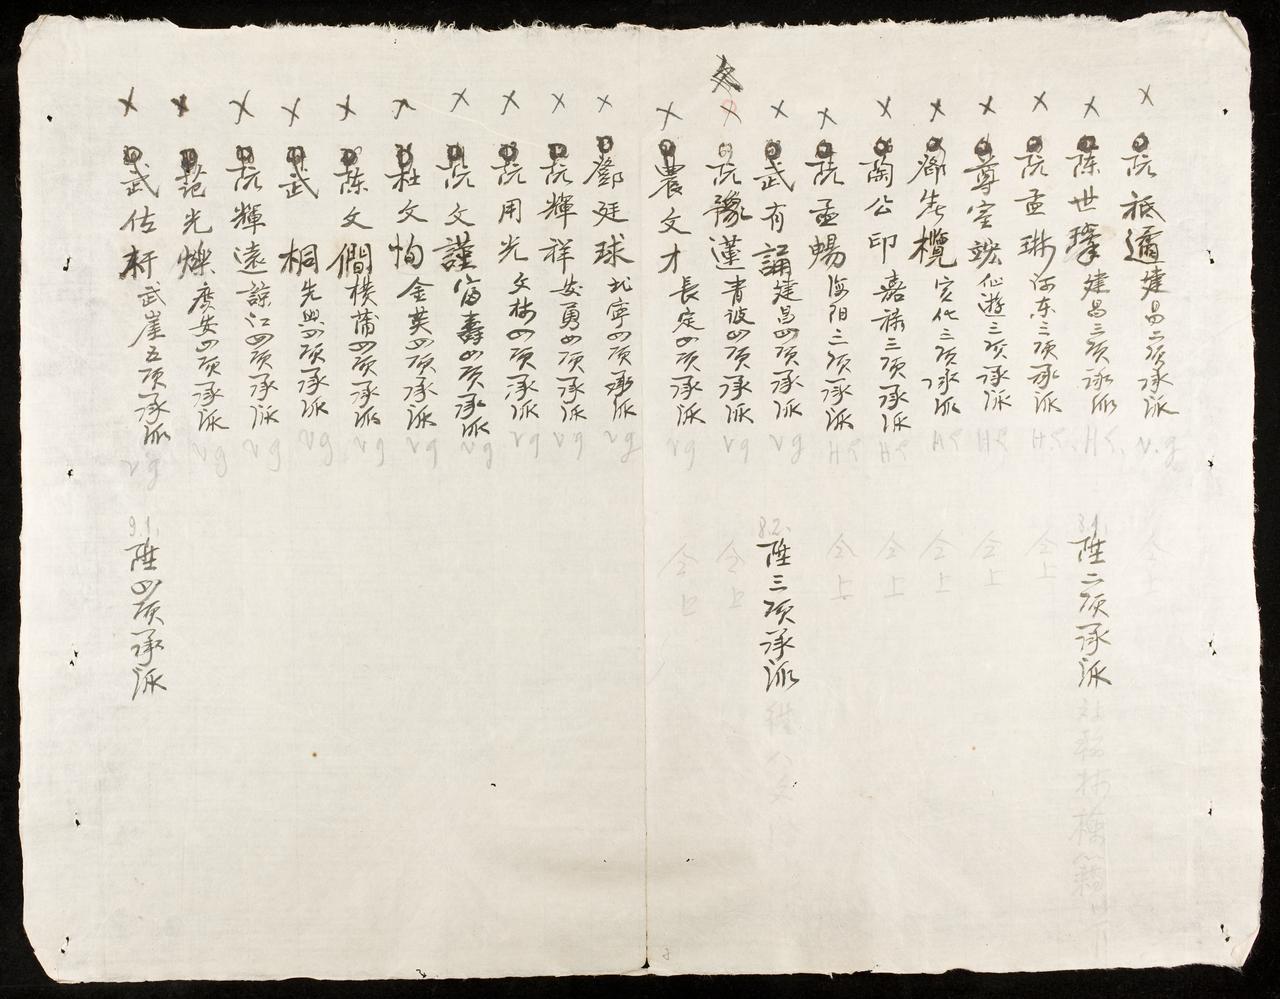 阮祗邇建昌二項承派
V.g
仝上
陈世㻮建昌三項承派
H.S.
8.1.
陞二項承派
阮孟琳河东三項承派
H.S.
仝上
尊室說仙遊三項承派
H.S
仝上
鄧先欖宣化三項承派
H.S
仝上
陶公印嘉禄三項承派
H.S
仝上
阮孟暢海阳三項承派
H.S
仝上
武有誦建昌四項承派
V g
8.2.
陞三項承派
阮豫蓮青波四項承派
V g
仝上
農文才長定四項承派
V g
仝上
鄧廷球北寧四項承派
V g
阮輝祥安勇四項承派
V g
阮用光文林四項承派
V g
阮文謹富壽四項承派
V g
杜文恂金英四項承派
V g
陈文僩橫蒲四項承派
V g
武桐先興四項承派
V g
阮輝遠諒江四項承派
V g
范光爍廣安四項承派
V g
武佐杅武崖五項承派
V g
9.1.
陞四項承派